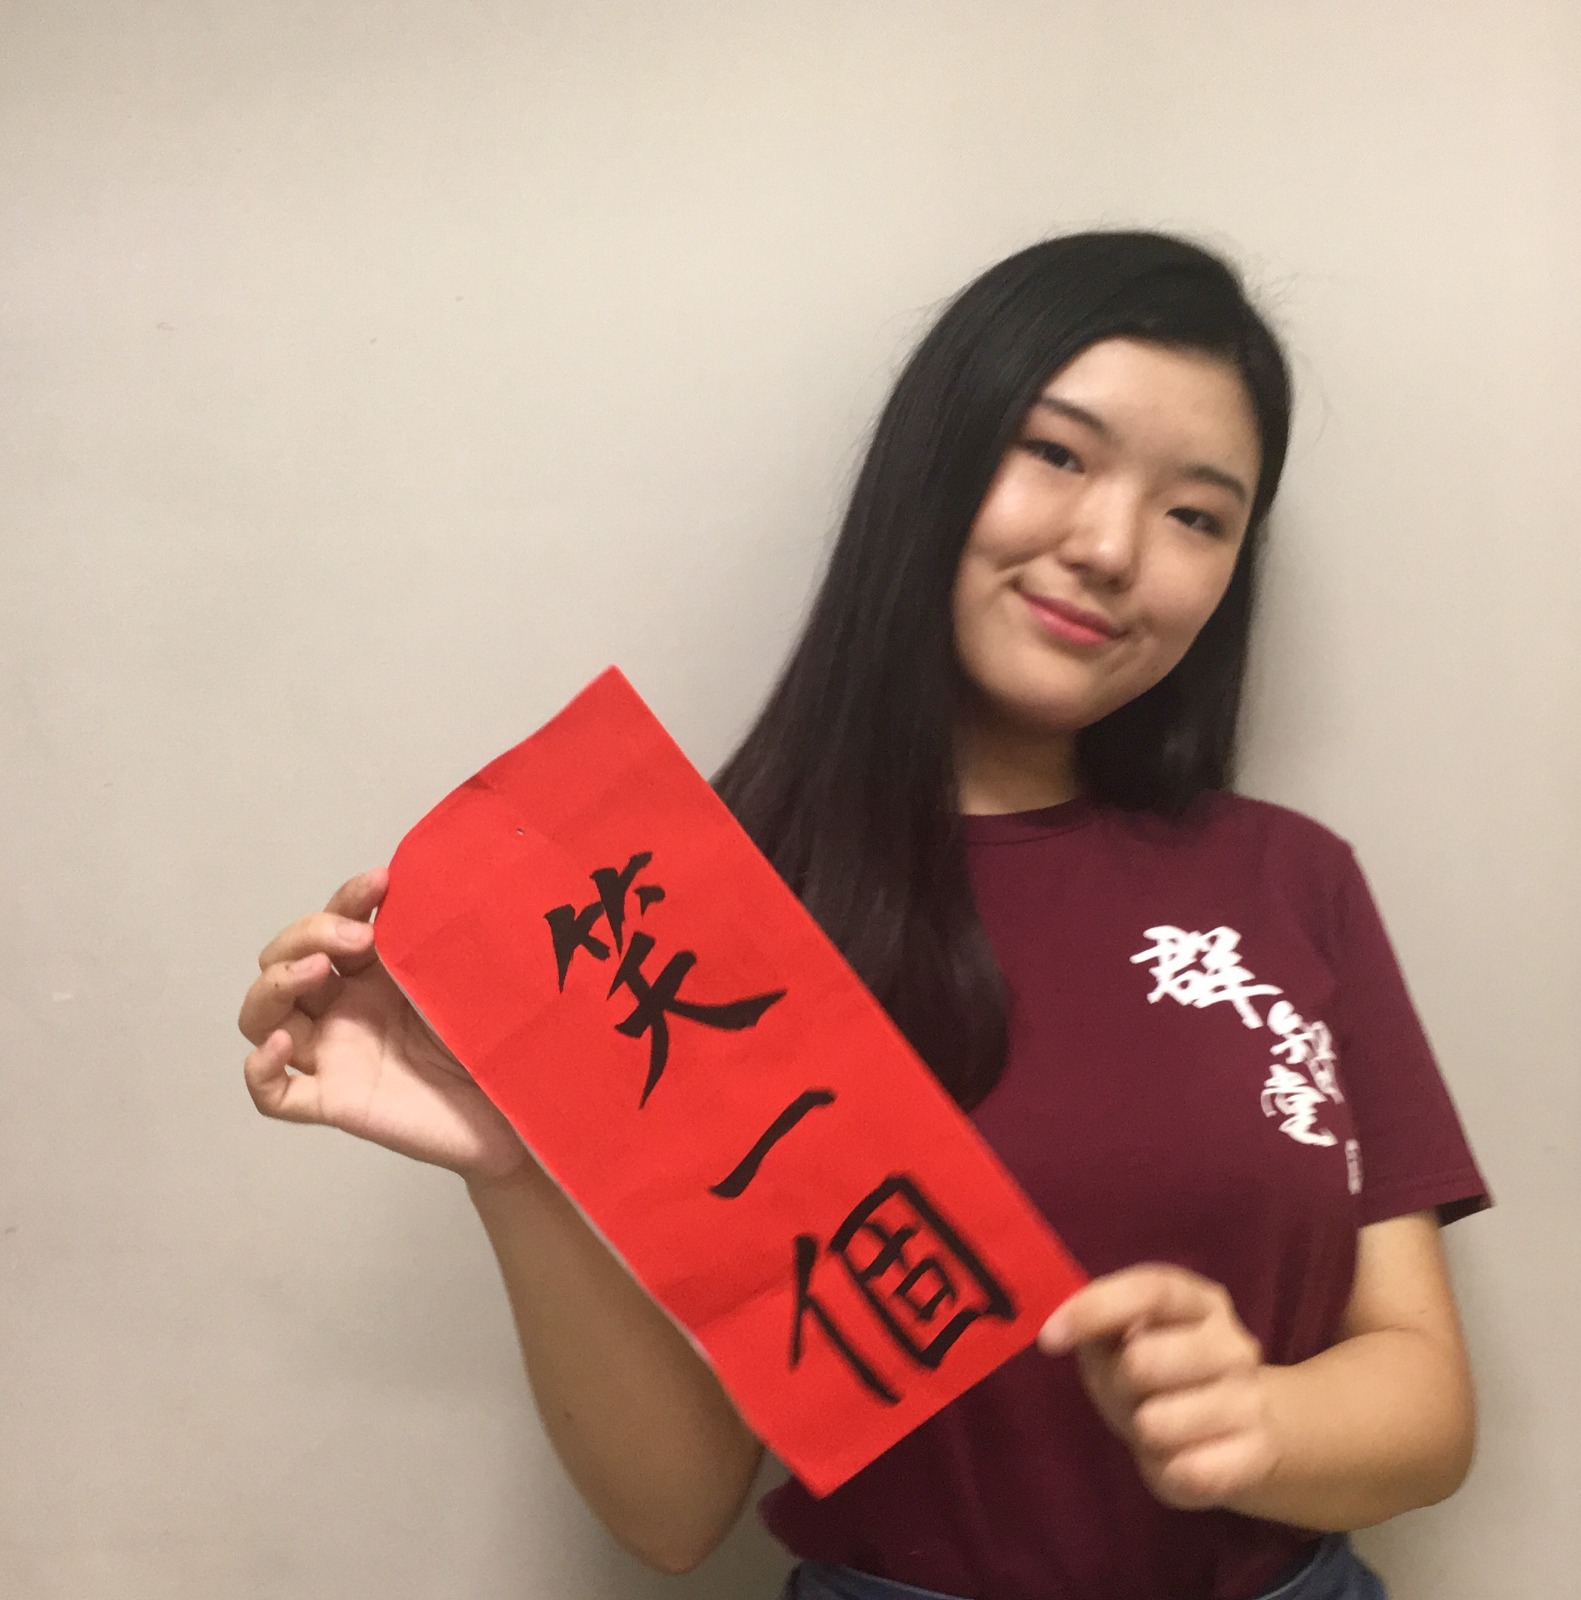 笑一個
群